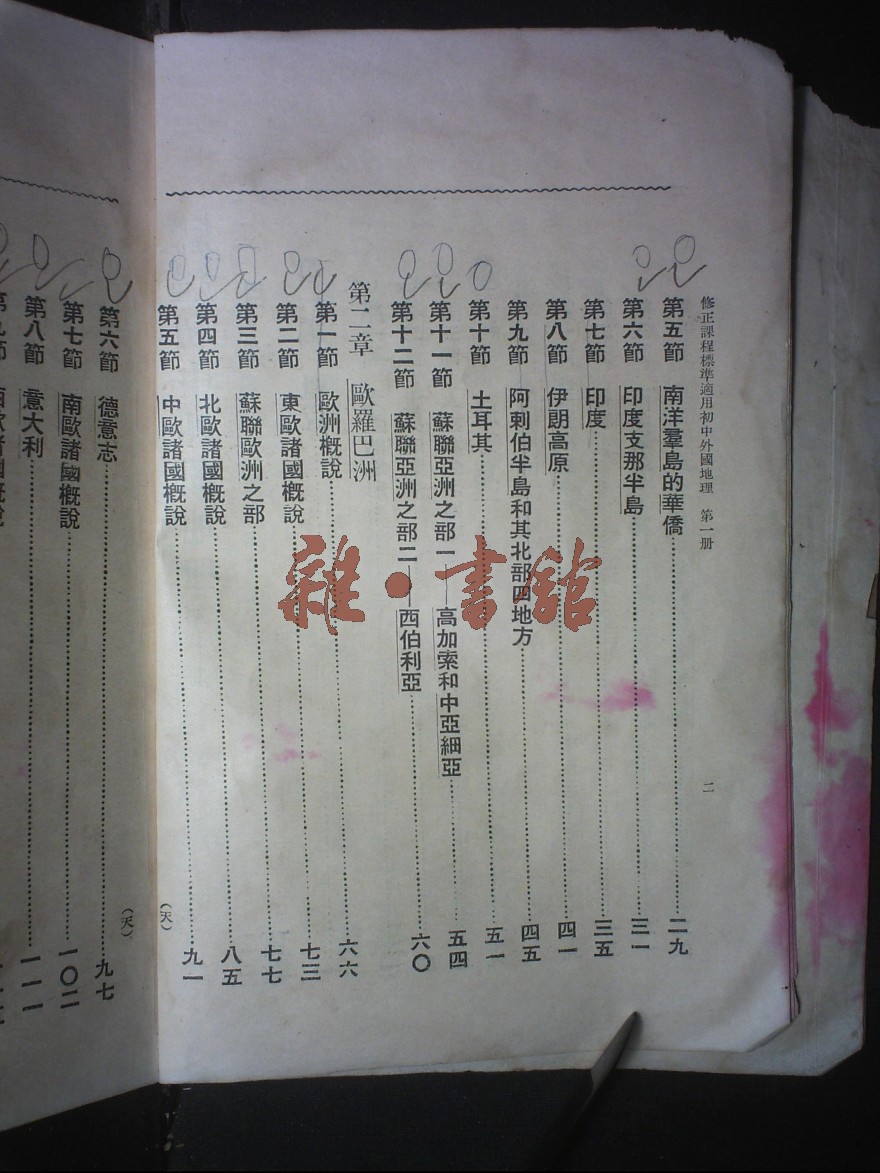 修正課程標準適用初中外國地理 第一册
二
第五節 南洋羣島的華僑 二九
第六節 印度支那半島 三一
第七節 印度 三五
第八節 伊朗高原 四一
第九節 阿剌伯半島和其北部四地方 四五
第十節 土耳其 五一
第十一節 蘇聯亞洲之部一——高加索和中亞細亞 五四
第十二節 蘇聯亞洲之部二——西伯利亞 六〇
第二章 歐羅巴洲
第一節 歐洲概說 六六
第二節 東歐諸國概說 七三
第三節 蘇聯歐洲之部 七七
第四節 北歐諸國概說 八五
第五節 中歐諸國概說 九一
(天)
第六節 德意志 九七
(天)
第七節 南歐諸國概說 一〇二
第八節 意大利 一一一
雜·書館